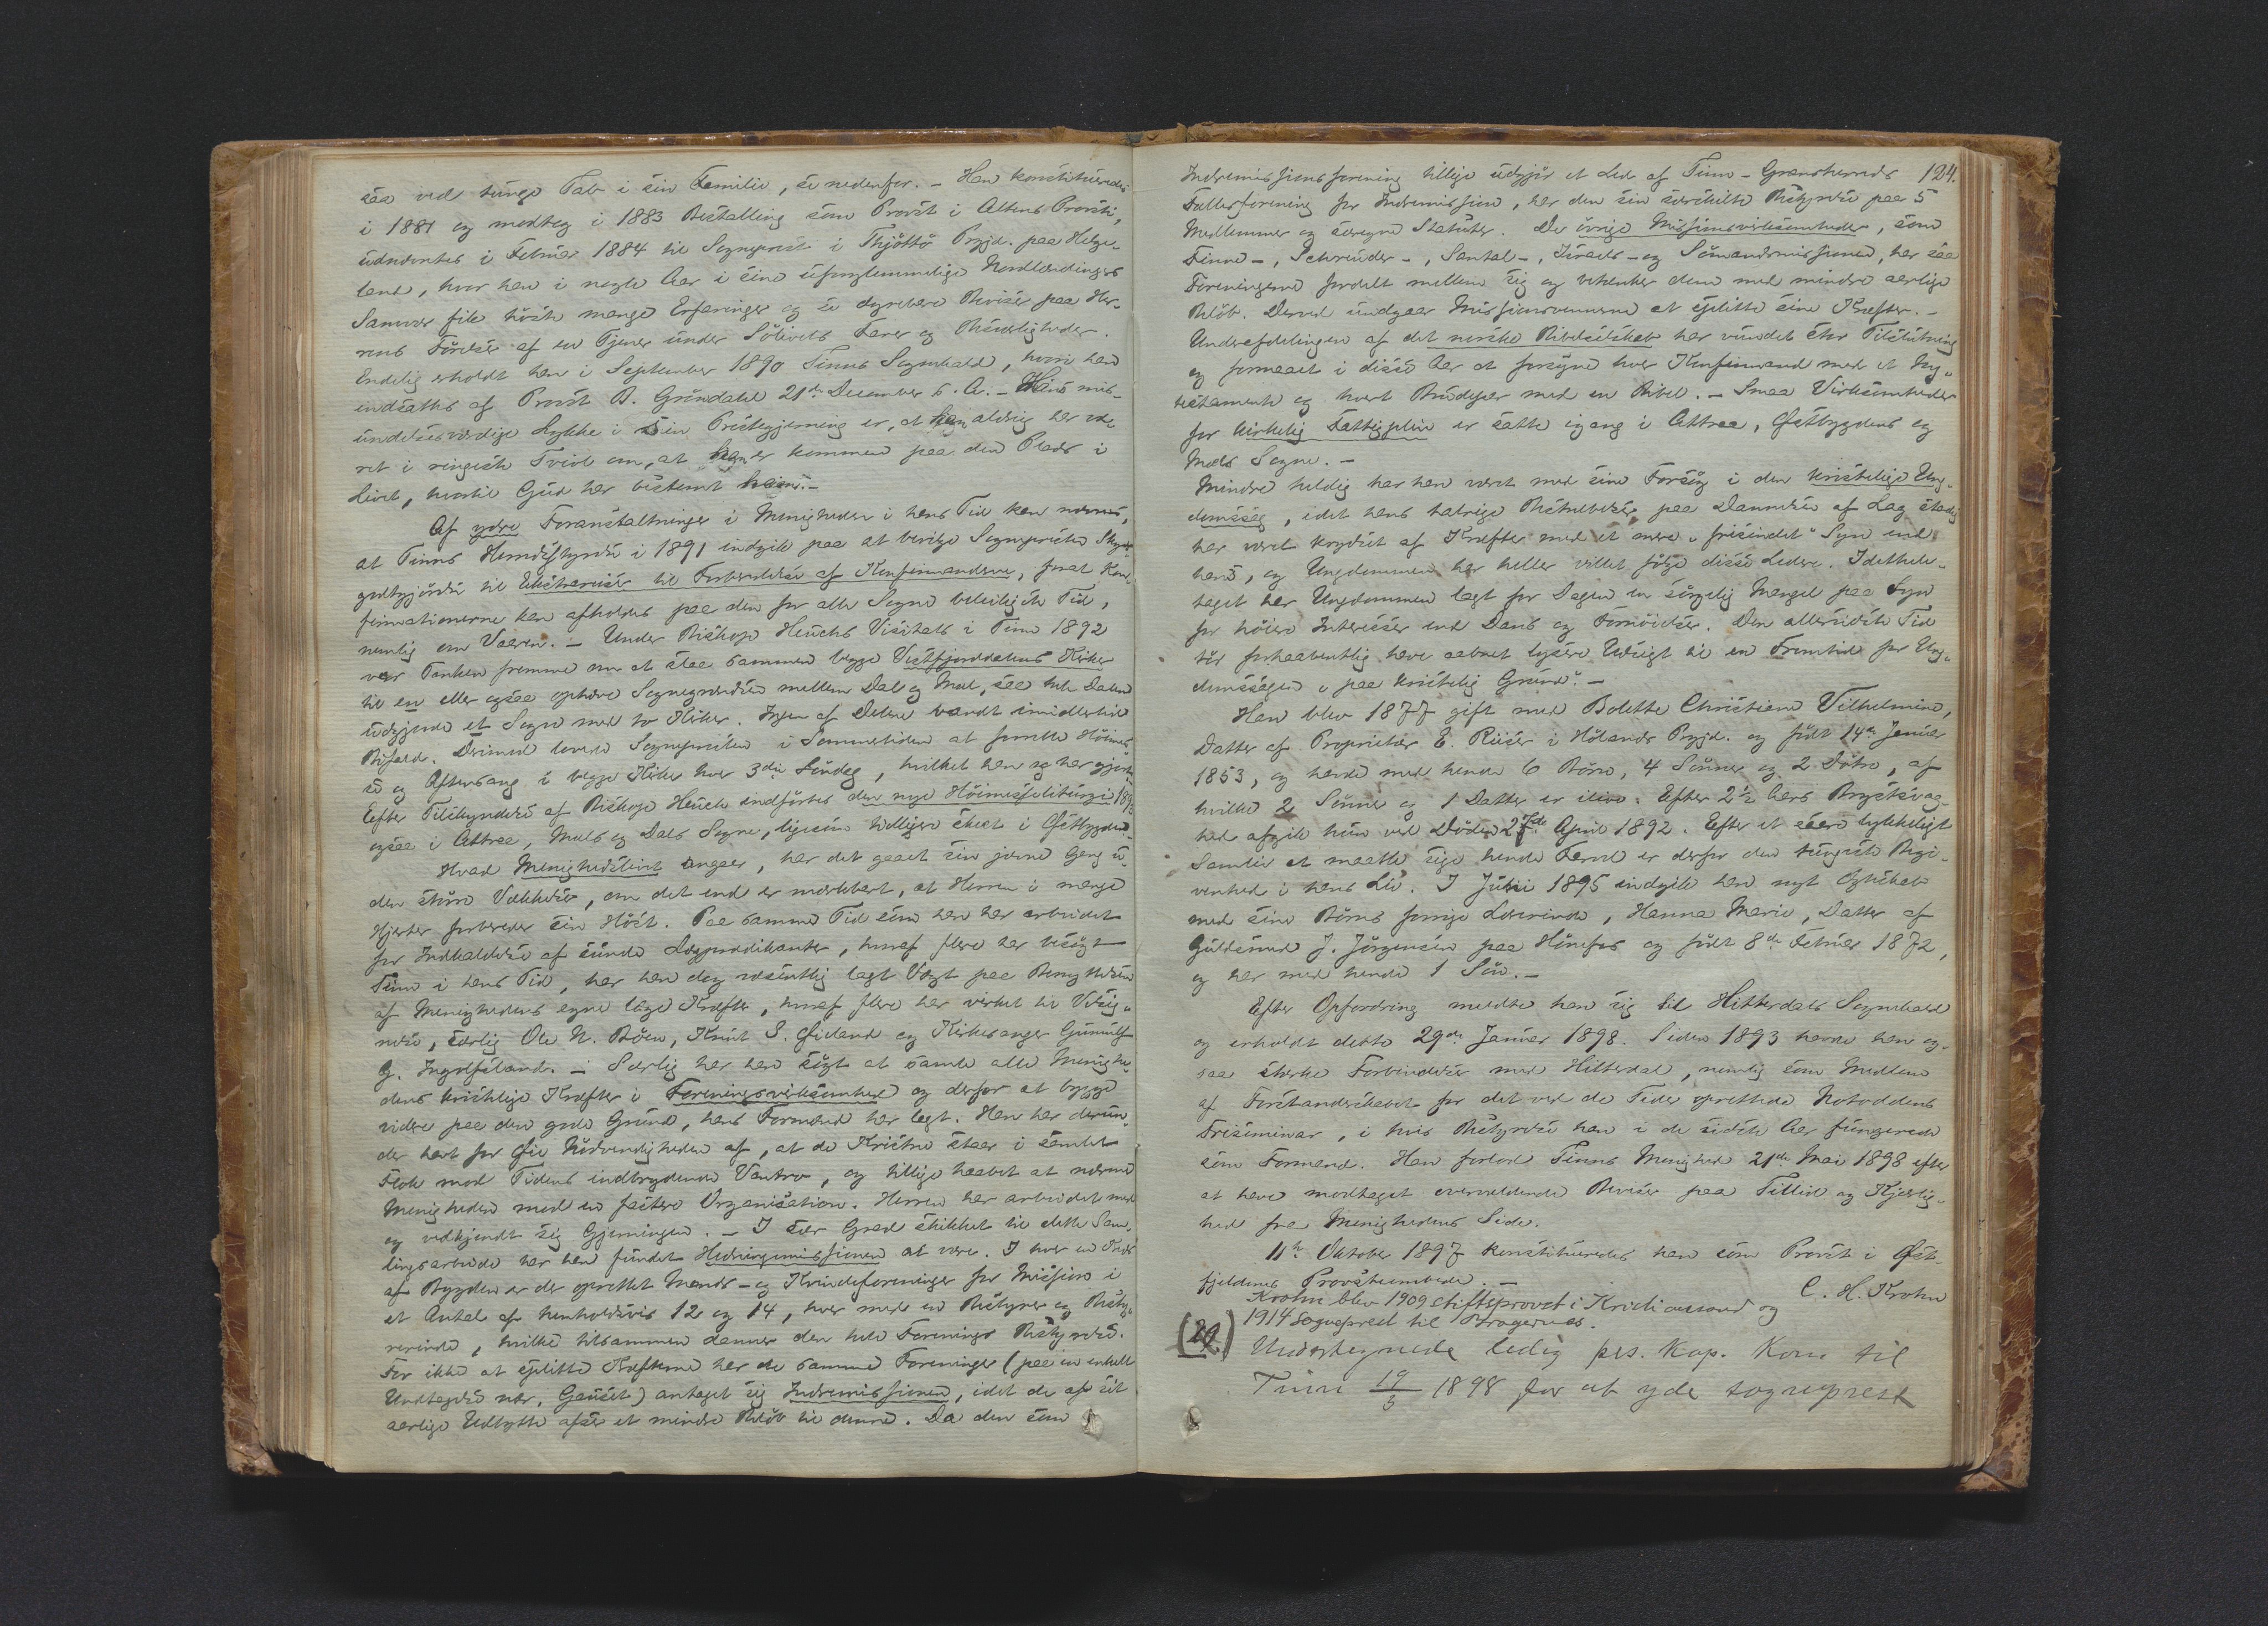 saa ved tunge Tab i sin Familie, se nedenfor. - Han konstitueredes
i 1881 og modtog i 1883 Bestalling som Provst i Altens Provsti,
udnævntes i Februar 1884 til Sogneprest i Thjøttø Prgjd. paa Helge-
land, hvor han i nogle Aar i sine uforglemmelige Nordlændingers
Samvær fik høste mange Erfaringer og se dyrebare Beviser paa Her-
rens Førelser af en Tjener under Sølivets Farer og Besværligheder.
Endelig erholdt han i September 1890 Tinns Sognekald, hvori han
indsattes af Provst B. Grøndahl 21de December s. A. - Hans mis-
undelsesværdige Lykke i sin Prestegjerning er, at han aldrig har væ-
ret i ringeste Tvivl om, at han er kommen paa den Plads i
Livet, hvortil Gud har bestemt ham. -
Af ydre Foranstaltninger i Menigheden i hans Tid kan nævnes,
at Tinns Herredsstyrelse i 1891 indgik paa at bevilge Sognepresten Skyds-
godtgjørelse til Extrareiser til Forberedelse af Konfirmanderne, forat Kon-
firmationerne kan afholdes paa den for alle Sogne beleiligste Tid,
nemlig om Vaaren. - Under Biskop Heuchs Visitats i Tinn 1892
var Tanken fremme om at slaa sammen begge Vestfjorddalens Kirker
til en eller ogsaa ophæve Sognegrændsen mellem Dal og Mæl, saa hele Dalen
udgjorde et Sogn med to Kirker. Ingen af Delene vandt imidlertid
Bifald. Derimod lovede Sognepresten i Sommertiden at forrette Høimes-
se og Aftensang i begge Kirker hver 3die Søndag, hvilket han og har gjort.
Efter Tilskyndelse af Biskop Heuch indførtes den nye Høimesseliturgi 1893
ogsaa i Attraa, Mæls og Dals Sogne, ligesom tidligere skeet i Østbygden.
Hvad Menighedslivet angaar, har det gaaet sin jævne Gang u-
den større Vækkelser, om det end er mærkbart, at Herren i mange
Hjerter forbereder sin Høst. Paa samme Tid som han har arbeidet
for Indkaldelse af sunde Lægprædikanter, hvoraf flere har besøgt
Tinn i hans Tid, har han dog væsentlig lagt Vægt paa Benyttelsen
af Menighedens egne læge Kræfter, hvoraf flere har virket til Velsig-
nelse, særlig Ole N. Bøen, Knut S. Øieland og Kirkesanger Gunnulf
G. Ingolfsland. - Særlig har han søgt at samle alle Menighe-
dens kristelige Kræfter i Foreningsvirksomhed og derfor at bygge
videre paa den gode Grund, hans Formænd har lagt. Han har derun-
der havt for Øie Nødvendigheden af, at de Kristne staar i samlet
Flok mod Tidens indbrydende Vantro, og tillige haabet at nærme
Menigheden mod en fastere Organisation. Herren har arbeidet med
og vedkjendt sig Gjerningen. - I især Grad skikket til dette Sam-
lingsarbeide har han fundet Hedningemissionen at være. I hver en Kreds
af Bygden er der oprettet Mands- og Kvindeforeninger for Mission i
et Antal af henholdsvis 12 og 14, hver med en Bestyrer og Besty-
rerinde, hvilke tilsammen danner den hele Forenings Bestyrelse.
For ikke at splitte Kræfterne har de samme Foreninger (paa en enkelt
Undtagelse nær, Gauset) antaget sig Indremissionen, idet de af sit
aarlige Udbytte afser et mindre Beløb til denne. Da den som
124.
Indremissionsforening tillige udgjør et Led af Tinn-Gransherreds
Fællesforening for Indremission, har den sin særskilte Bestyrelse paa 5
Medlemmer og særegne Statuter. De øvrige Missionsvirksomheder, som
Finne-, Schreuder-, Santal-, Israels- og Sømandsmissionen, har saa
Foreningerne fordelt mellem sig og betænker dem med mindre aarlige
Beløb. Derved undgaar Missionsvennerne at splitte sine Kræfter. -
Underafdelingen af det norske Bibelselskab har vundet stor Tilslutning
og formaaet i disse Aar at forsyne hver Konfirmand med et Ny-
testamente og hvert Brudepar med en Bibel. - Smaa Virksomheder
for kirkelig Fattigpleie er satte igang i Attraa, Østbygdens og
Mæls Sogne. -
Mindre heldig har han været med sine Forsøg i den kristelige Ung-
domssag, idet hans talrige Bestræbelser paa Dannelse af Lag stadig
har været krydset af Kræfter med et mere "frisindet" Syn end
hans, og Ungdommen har heller villet følge disse Ledere. I det hele-
taget har Ungdommen lagt for Dagen en sørgelig Mangel paa Syn
for høiere Interesser end Dans og Fornøielser. Den allersidste Tid
tør forhaabentlig have aabnet lysere Udsigt til en Fremtid for Ung-
domssagen "paa kristelig Grund". -
Han blev 1877 gift med Bolette Christiane Vilhelmine,
Datter af Proprietær E. Riiser i Hølands Prgjd. og født 14de Januar
1853, og havde med hende 6 Børn, 4 Sønner og 2 Døtre, af
hvilke 2 Sønner og 1 Datter er ilive. Efter 2½ Aars Brystsvag-
hed afgik hun ved Døden 27de April 1892. Efter et saare lykkeligt
Samliv at maatte sige hende Farvel er derfor den tungeste Begi-
venhed i hans Liv. I Juni 1895 indgik han nyt Ægteskab
med sine Børns forrige Lærerinde, Hanna Marie, Datter af
Guldsmed J. Jørgensen paa Hønefos og født 8de Februar 1872,
og har med hende 1 Søn. -
Efter Opfordring meldte han sig til Hitterdals Sognekald
og erholdt dette 29de Januar 1898. Siden 1893 havde han og-
saa stærke Forbindelser med Hitterdal, nemlig som Medlem
af Forstanderskabet for det ved de Tider oprettede Notoddens
Friseminar, i hvis Bestyrelse han i de sidste Aar fungerede
som Formand. Han forlod Tinns Menighed 21de Mai 1898 efter
at have modtaget overvældende Beviser paa Tillid og Kjærlig-
hed fra Menighedens Side.
11te Oktober 1897 konstitueredes han som Provst i Øst-
fjeldenes Provsteembede. -
C. H. Krohn
Krohn blev 1909 stiftsprovst i Kristianssand og
1914 sogneprest til Bragernes.
(29) Undertegnede ledig pes. kap. kom til
Tinn 19/5 1898 for at yde sogneprest